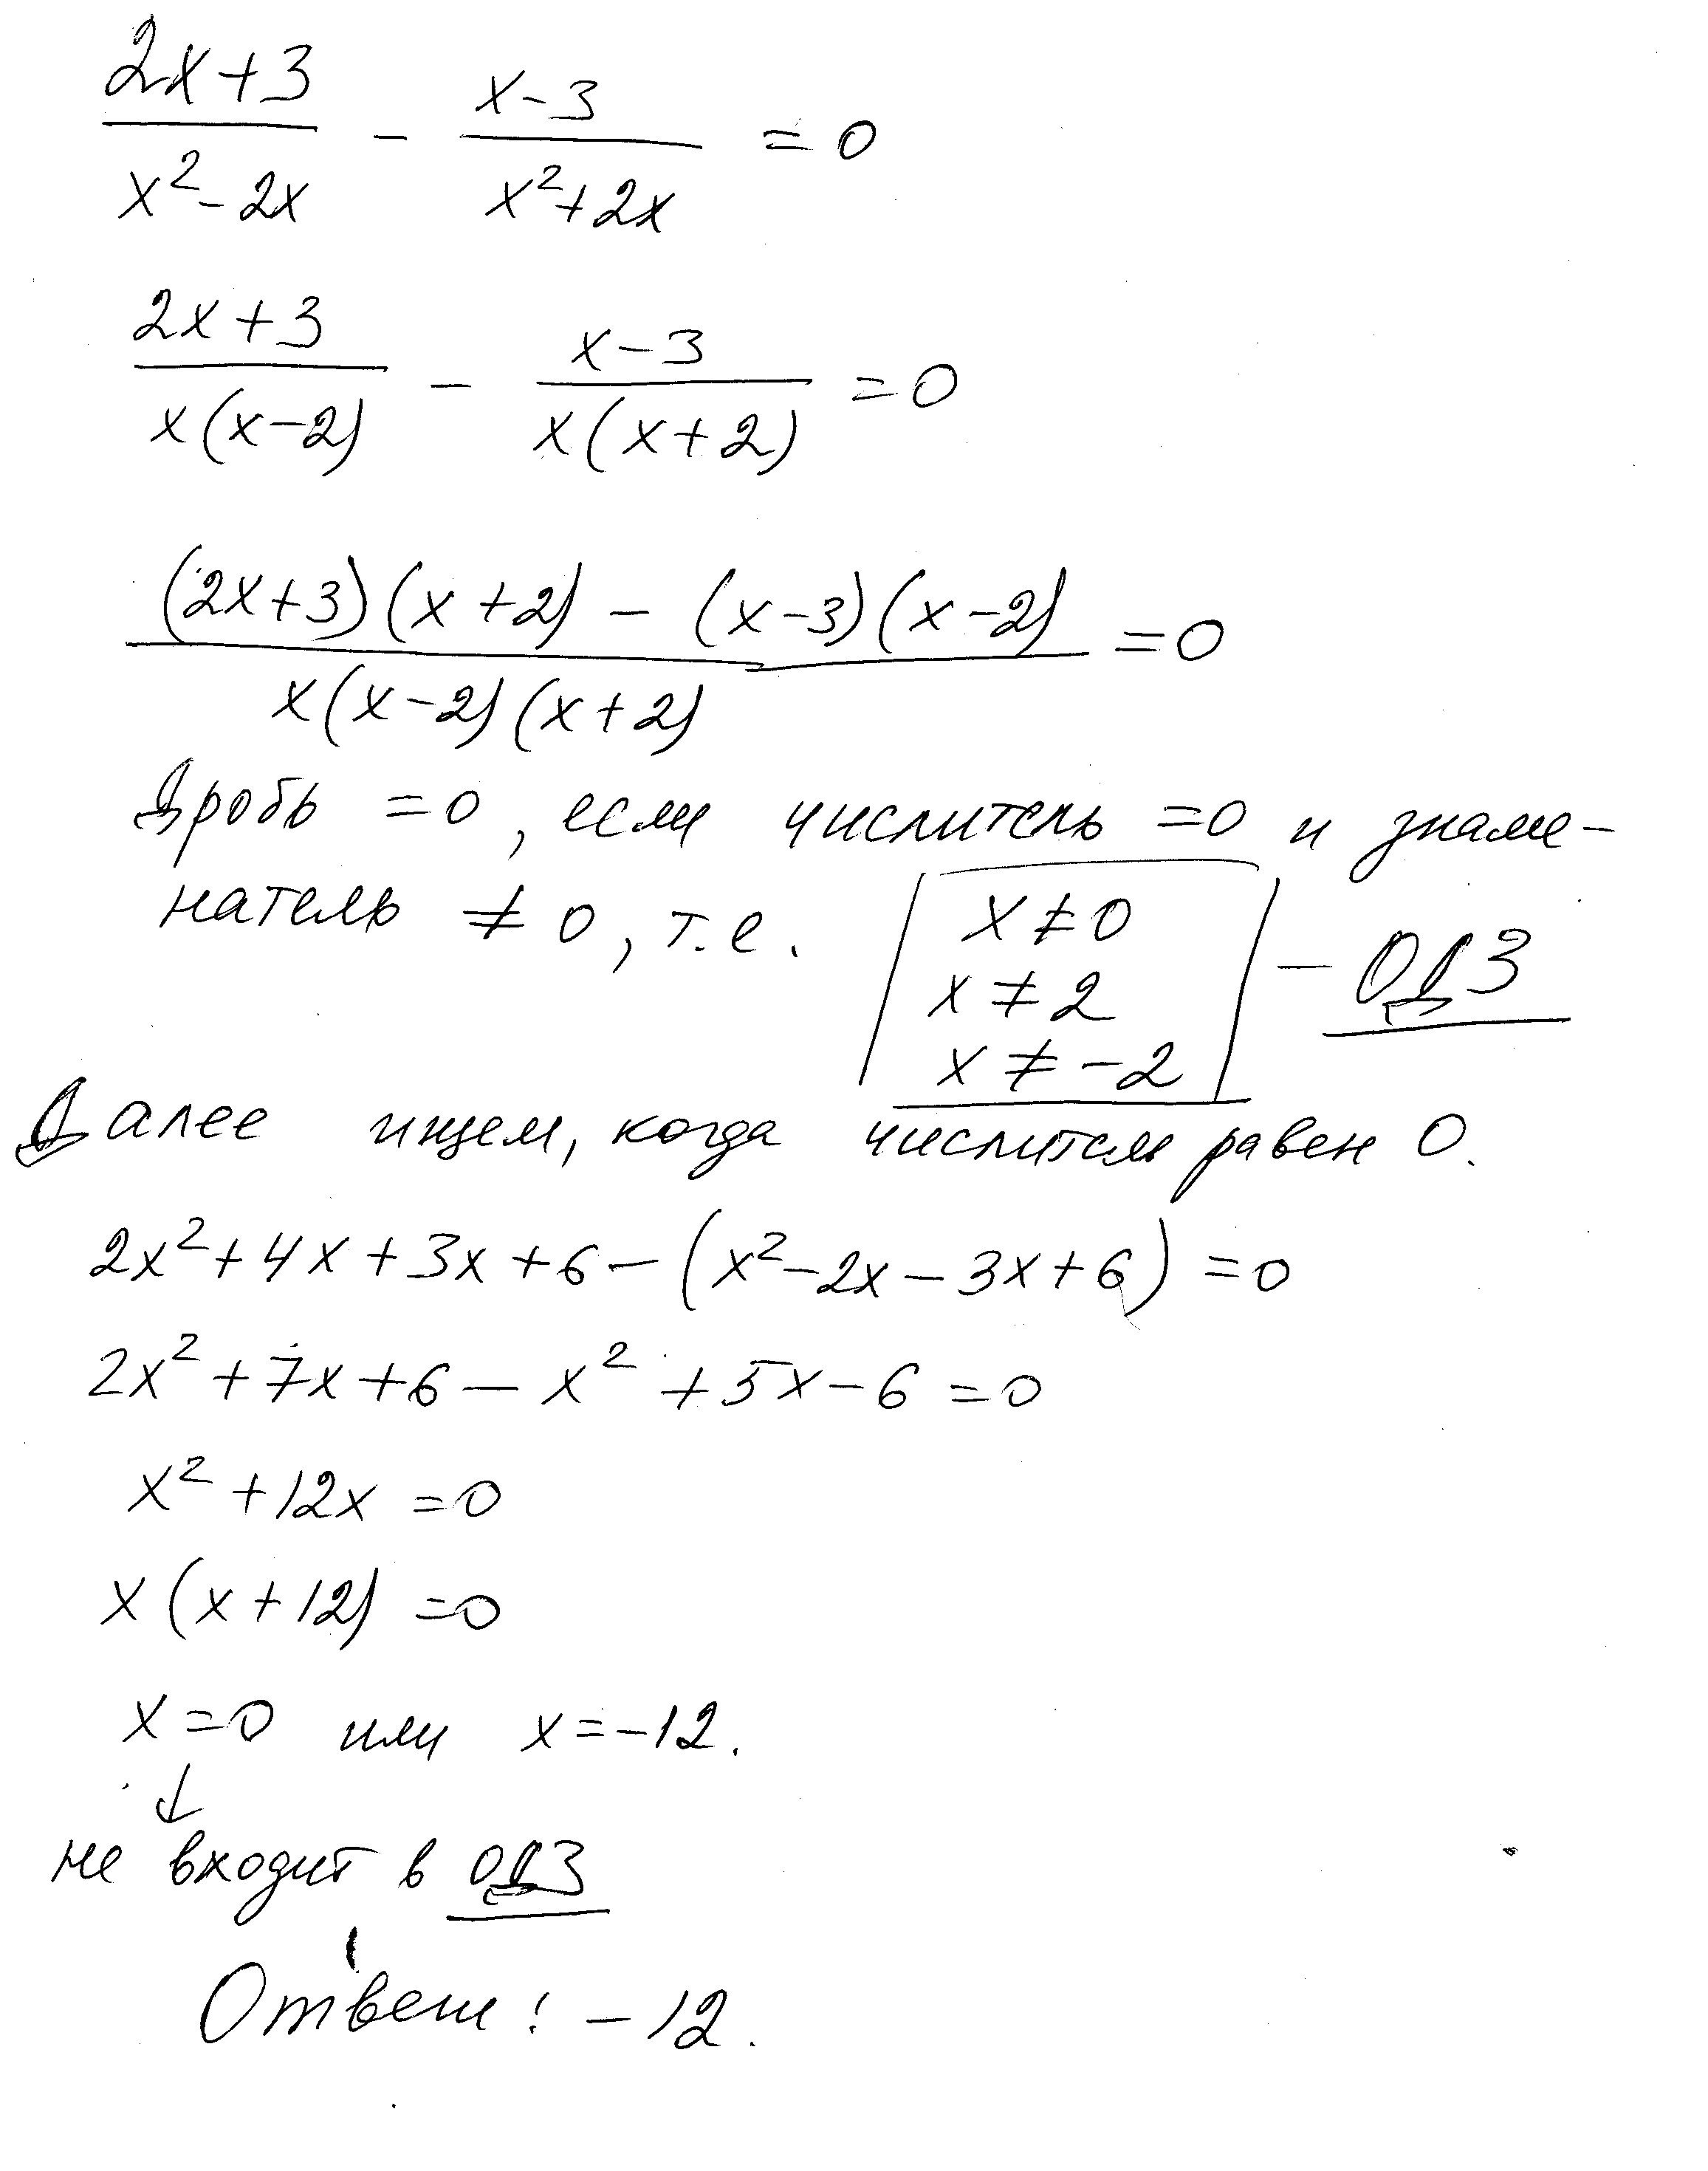 (2x+3)/(x²-2x) - (x-3)/(x²+2x) = 0
(2x+3)/(x(x-2)) - (x-3)/(x(x+2)) = 0
((2x+3)(x+2) - (x-3)(x-2))/(x(x-2)(x+2)) = 0
Дробь =0, если числитель =0 и знаме-
натель ≠ 0, т.е. x≠0
x ≠ 2 - ОДЗ
x ≠ -2
Далее ищем, когда числитель равен 0.
2x²+4x+3x+6-(x²-2x-3x+6)=0
2x²+7x+6-x²+5x-6=0
x²+12x=0
x(x+12)=0
x=0 или x=-12.
↓
не входит в ОДЗ
Ответ: -12.